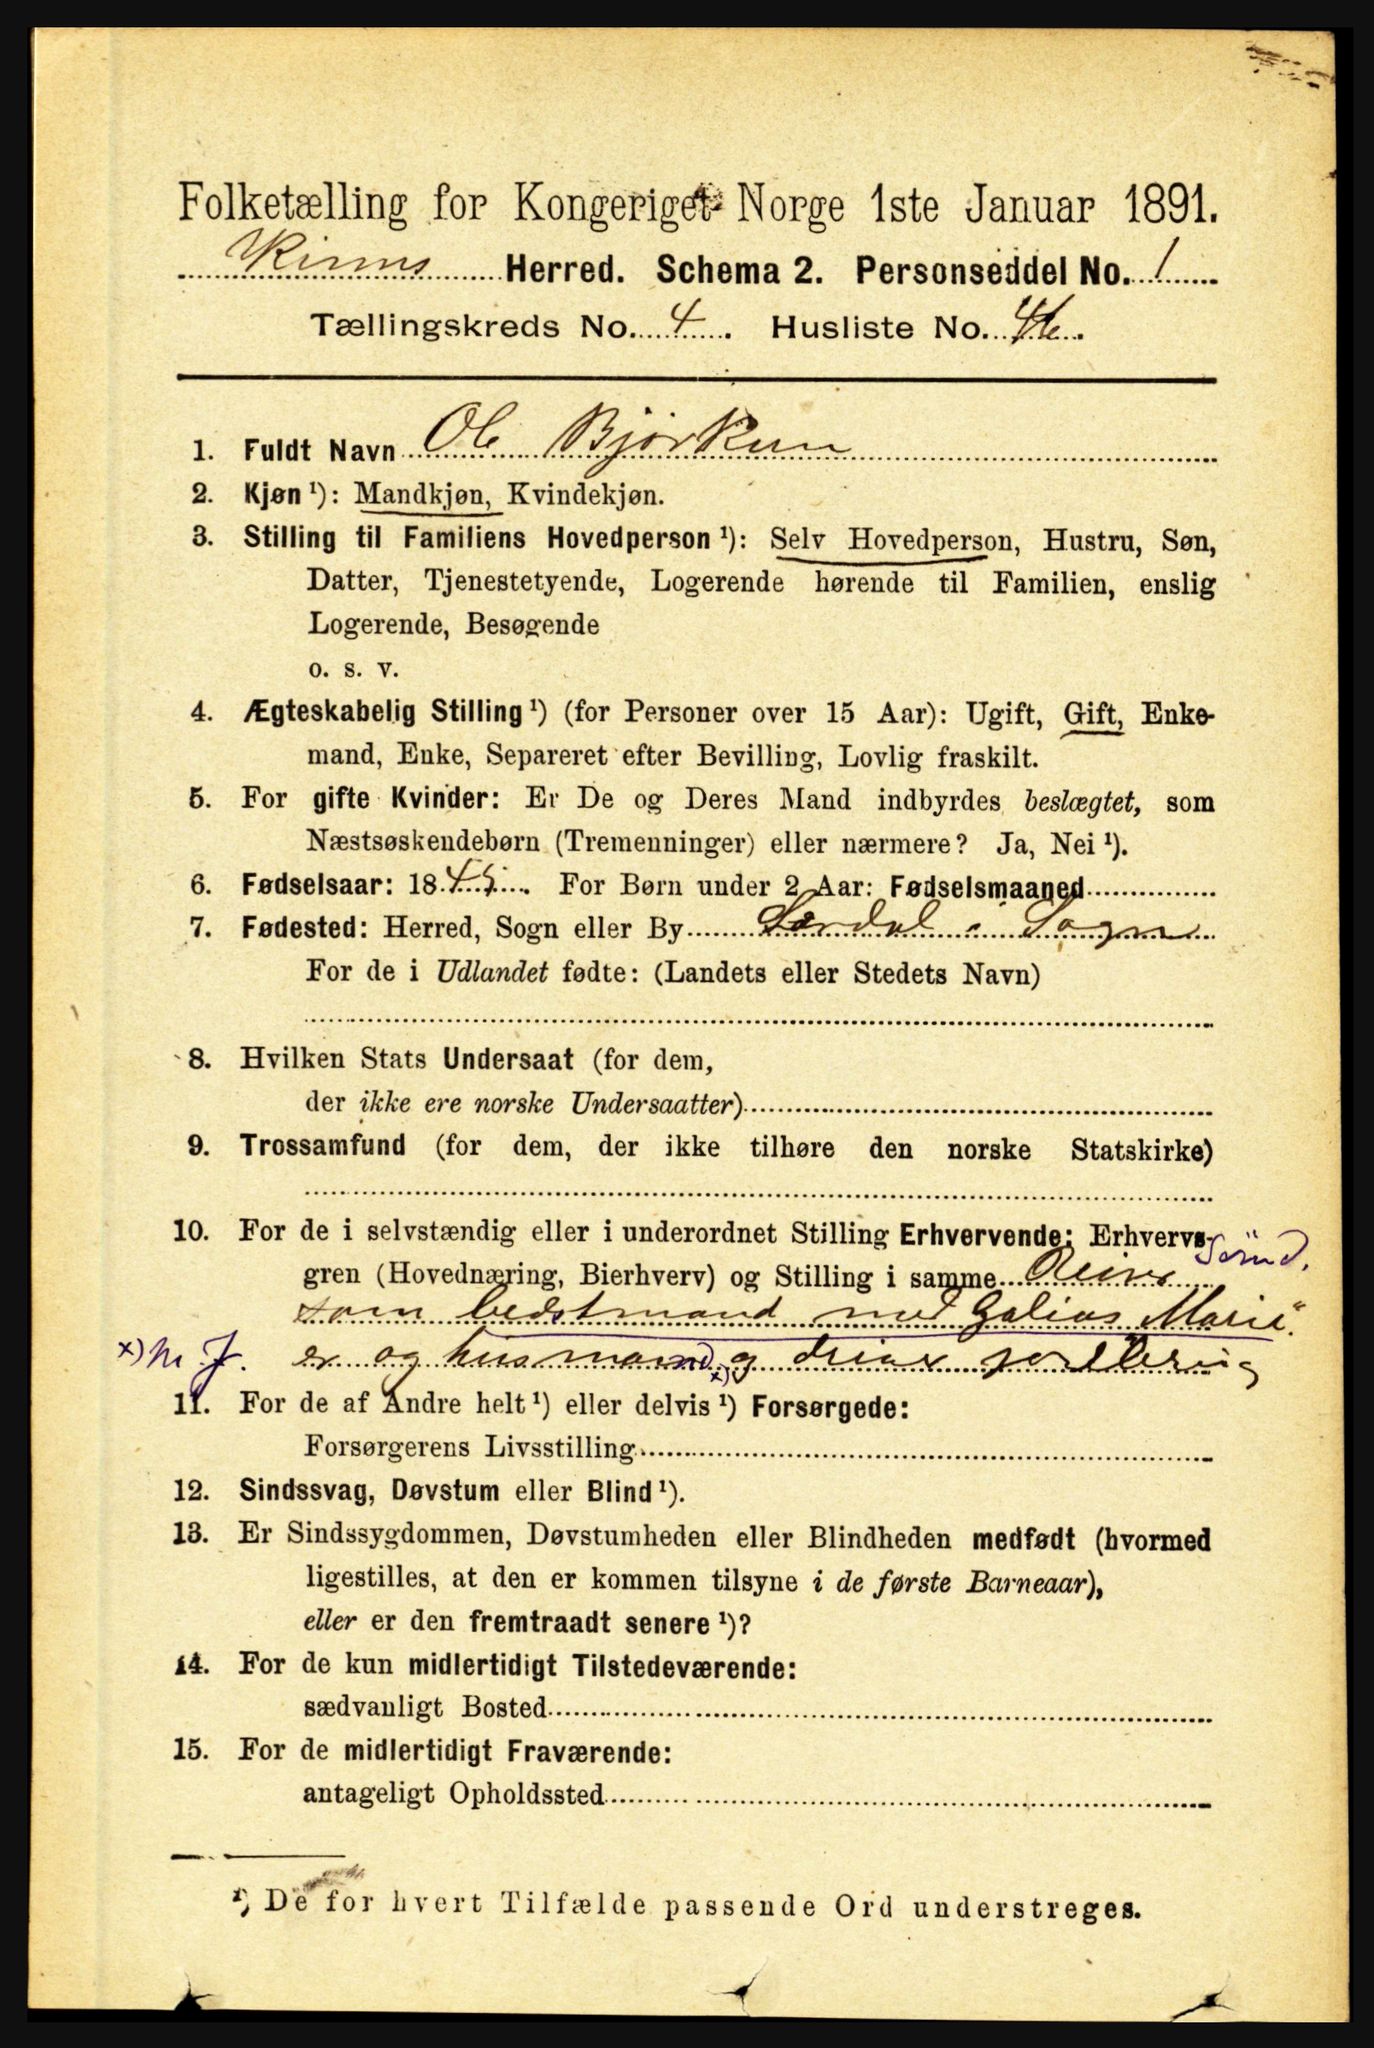 Folketælling for Kongeriget Norge 1ste Januar 1891.
Kinns Herred. Schema 2. Personseddel No. 1
Tællingskreds No. 4. Husliste No. 46.
1. Fuldt Navn Ole Bjørkum
2. Kjøn ¹): Mandkjøn, Kvindekjøn.
3. Stilling til Familiens Hovedperson ¹): Selv Hovedperson, Hustru, Søn,
Datter, Tjenestetyende, Logerende hørende til Familien, enslig
Logerende, Besøgende
o. s. v.
4. Ægteskabelig Stilling ¹) (for Personer over 15 Aar): Ugift, Gift, Enke-
mand, Enke, Separeret efter Bevilling, Lovlig fraskilt.
5. For gifte Kvinder: Er De og Deres Mand indbyrdes beslægtet, som
Næstsøskendebørn (Tremenninger) eller nærmere? Ja, Nei ¹).
6. Fødselsaar: 1845. For Børn under 2 Aar: Fødselsmaaned
7. Fødested: Herred, Sogn eller By Lærdal i Sogn
For de i Udlandet fødte: (Landets eller Stedets Navn)
8. Hvilken Stats Undersaat (for dem,
der ikke ere norske Undersaatter)
9. Trossamfund (for dem, der ikke tilhøre den norske Statskirke)
10. For de i selvstændig eller i underordnet Stilling Erhvervende: Erhvervs-
gren (Hovednæring, Bierhverv) og Stilling i samme
som bedstmand med Galias Marie".
x) m. J. er og husmand x) og driver
11. For de af Andre helt ¹) eller delvis ¹) Forsørgede:
Forsørgerens Livsstilling
12. Sindssvag, Døvstum eller Blind ¹).
13. Er Sindssygdommen, Døvstumheden eller Blindheden medfødt (hvormed
ligestilles, at den er kommen tilsyne i de første Barneaar),
eller er den fremtraadt senere ¹)?
14. For de kun midlertidigt Tilstedeværende:
sædvanligt Bosted
15. For de midlertidigt Fraværende:
antageligt Opholdssted
¹) De for hvert Tilfælde passende Ord understreges.